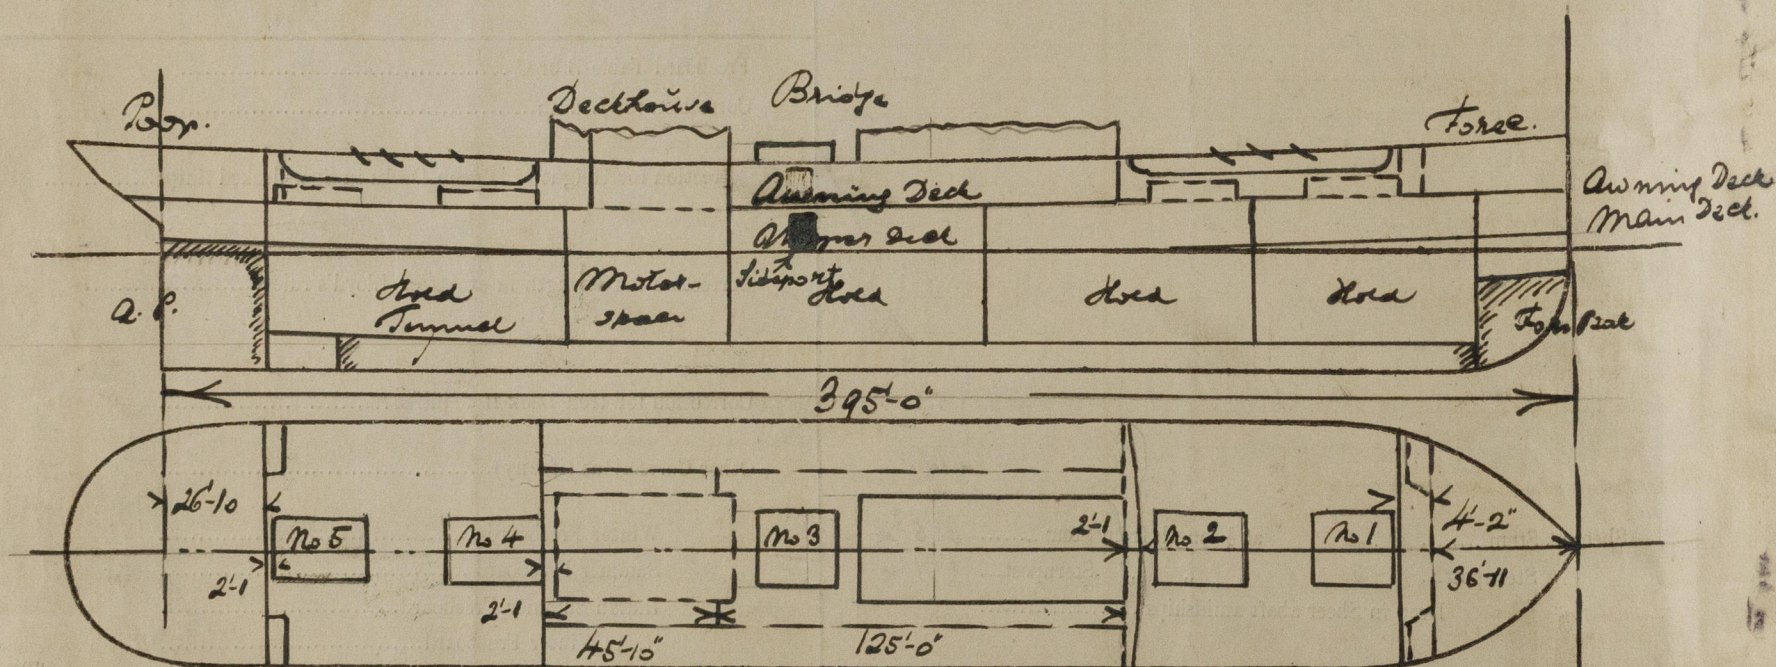 Poop.
Deckhouse
Bridge
Forec.
Awning Deck
Awning Deck
Main Deck.
Upper Deck
Sideport
A. P.
Hold
Tunnel
Motor-
space
Hold
Hold
Hold
Fore Peak
395'-0"
26'-10
No 5
No 4
No 3
2'-1
No 2
No 1
4'-2"
2'-1
2'-1
36'-11
45'-10"
125'-0"